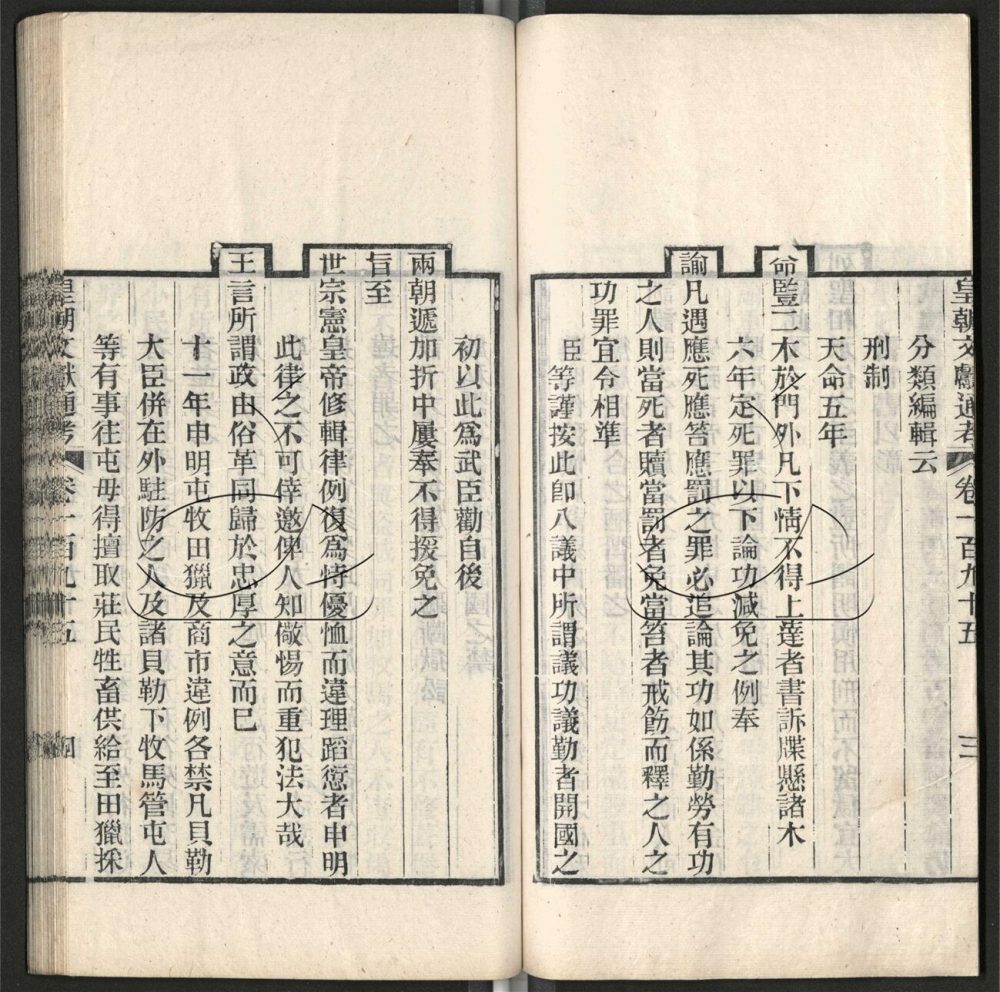 皇朝文獻通考 卷一百九十五 三
分類編輯云
刑制
天命五年
命豎二木於門外凡下情不得上達者書訴牒懸諸木
六年定死罪以下論功減免之例奉
諭凡遇應死應笞應罰之罪必追論其功如係勤勞有功
之人則當死者贖當罰者免當笞者戒飭而釋之人之
功罪宜令相準
臣等謹按此卽八議中所謂議功議勤者開國之
初以此爲武臣勸自後
兩朝遞加折中屢奉不得援免之
旨至
世宗憲皇帝修輯律例復爲恃優恤而違理蹈愆者申明
此律之不可倖邀俾人知儆惕而重犯法大哉
王言所謂政由俗革同歸於忠厚之意而已
十一年申明屯牧田獵及商市違例各禁凡貝勒
大臣併在外駐防之人及諸貝勒下牧馬管屯人
等有事往屯毋得擅取莊民牲畜供給至田獵採
皇朝文獻通考 卷一百九十五 四